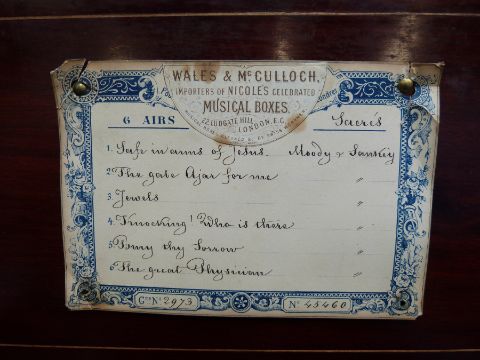 WALES & McCULLOCH,
IMPORTERS OF NICOLES CELEBRATED
MUSICAL BOXES.
22, LUDGATE HILL,
LONDON, E.C.
6 AIRS Sacrés
1. Safe in arms of Jesus. Moody & Sankey
2. The gate Ajar for me "
3. Jewels "
4. Knocking! Who is there "
5. Bring thy Sorrow "
6. The great Physician "
Gme No 2973 No 45460